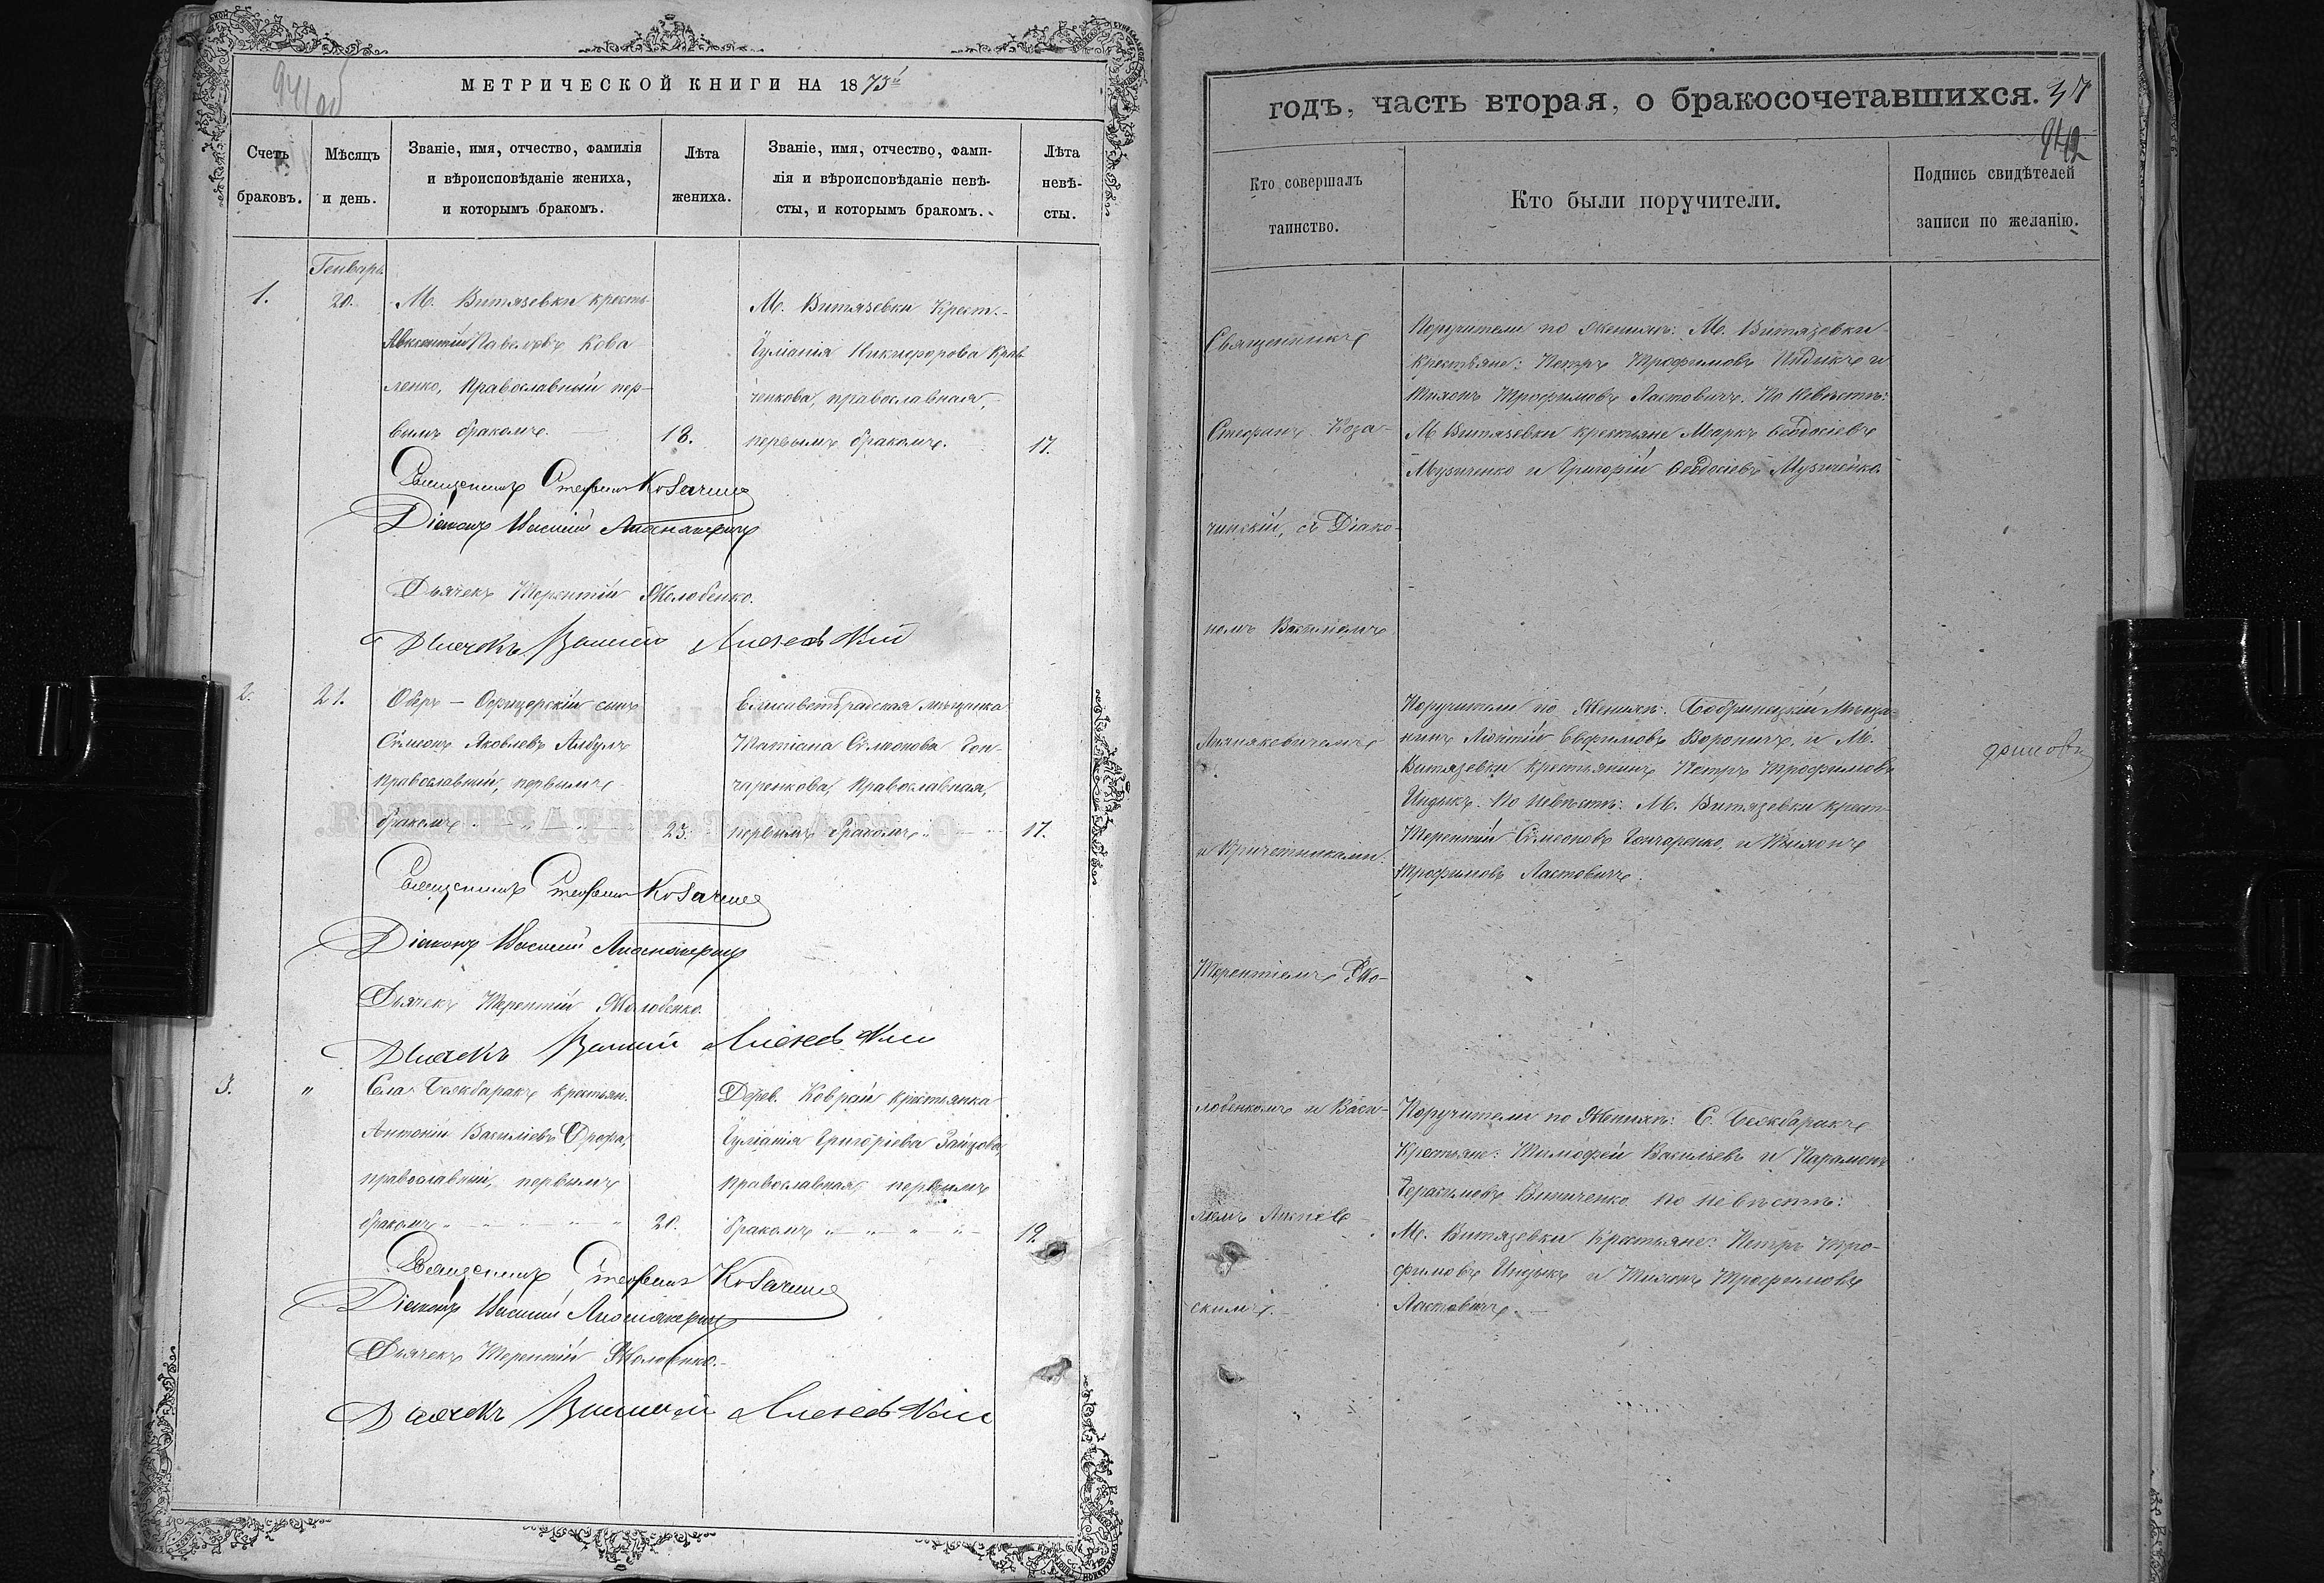 941 об
МЕТРИЧЕСКОЙ КНИГИ НА 1873й
Счетъ браковъ.
Мѣсяцъ и день.
Званіе, имя, отчество, фамилія
и вѣроисповѣданіе жениха,
и которымъ бракомъ.
Лѣта жениха.
Званіе, имя, отчество, фами-
лія и вѣроисповѣданіе невѣ-
сты, и которымъ бракомъ.
Лѣта невѣ-
сты.
1.
Генварь
20.
М. Витязевки кресть-
Павловъ Кова
ленко, Православный пер-
вымъ бракомъ.
18.
М. Витязевки Крест.
Іуліанія Никифорова Крав
ченкова, православная,
первымъ бракомъ.
17.
Священникъ Стефанъ Козачинс
Діаконъ Василій
Дьячекъ Терентій Жолобенко.
Дьячекъ Василій
2.
21.
Оберъ-Офицерскій сынъ
Сѵмеонъ Яковлевъ Албулъ
православный, первымъ
бракомъ
23.
Елисаветградская мѣщанка
Татіана Сѵмеонова Гон-
чаренкова, Православная,
первымъ бракомъ
17.
Священникъ Стефанъ Козачинс
Діаконъ Василій
Дьячекъ Терентій Жолобенко.
Дьячекъ Василій
3.
"
Села Бежбаракъ крестьян.
Антоній Василіевъ Дрофа,
православный, первымъ
бракомъ
20.
Дерев. Коврай крестьянка
Іуліанія Григоріева Зайцова,
православная, первымъ
бракомъ
19.
Священникъ Стефанъ Козачинс
Діаконъ Василій
Дьячекъ Терентій Жолобенко.
Дьячекъ Василій
годъ, часть вторая, о бракосочетавшихся.
37
942
Кто совершалъ
таинство.
Кто были поручители.
Подпись свидѣтелей
записи по желанію.
Священникъ
Стефанъ Коза-
чинскій, съ Діако-
номъ Василіемъ
и Причетниками:
Терентіемъ Жо-
лобенкомъ и Васи-
скимъ.
Поручители по Женихѣ: М. Витязевки
крестьяне: Петръ Трофимовъ Индыкъ и
Тихонъ Трофимовъ Ластовичъ. По Невѣстѣ:
М. Витязевки крестьяне Маркъ Ѳеодосіевъ
Музиченко и Григорій Ѳеодосіевъ Музиченко.
Поручители по Женихѣ: Бобринецкій Мѣща-
нинъ Евфимовъ Вороничъ, и М.
Витязевки крестьянинъ Петръ Трофимовъ
Индыкъ. По Невѣстѣ: М. Витязевки крест-
Терентій Сѵмеоновъ Гончаренко, и Тихонъ
Трофимовъ Ластовичъ.
Поручители по Женихѣ: С. Бежбаракъ
Крестьяне: Тимофей Васильевъ и Парамонъ
Герасимовъ Виниченко по невѣстѣ:
М. Витязевки Крестьяне: Петръ Тро-
фимовъ Индыкъ и Тихонъ Трофимовъ
Ластовичъ.